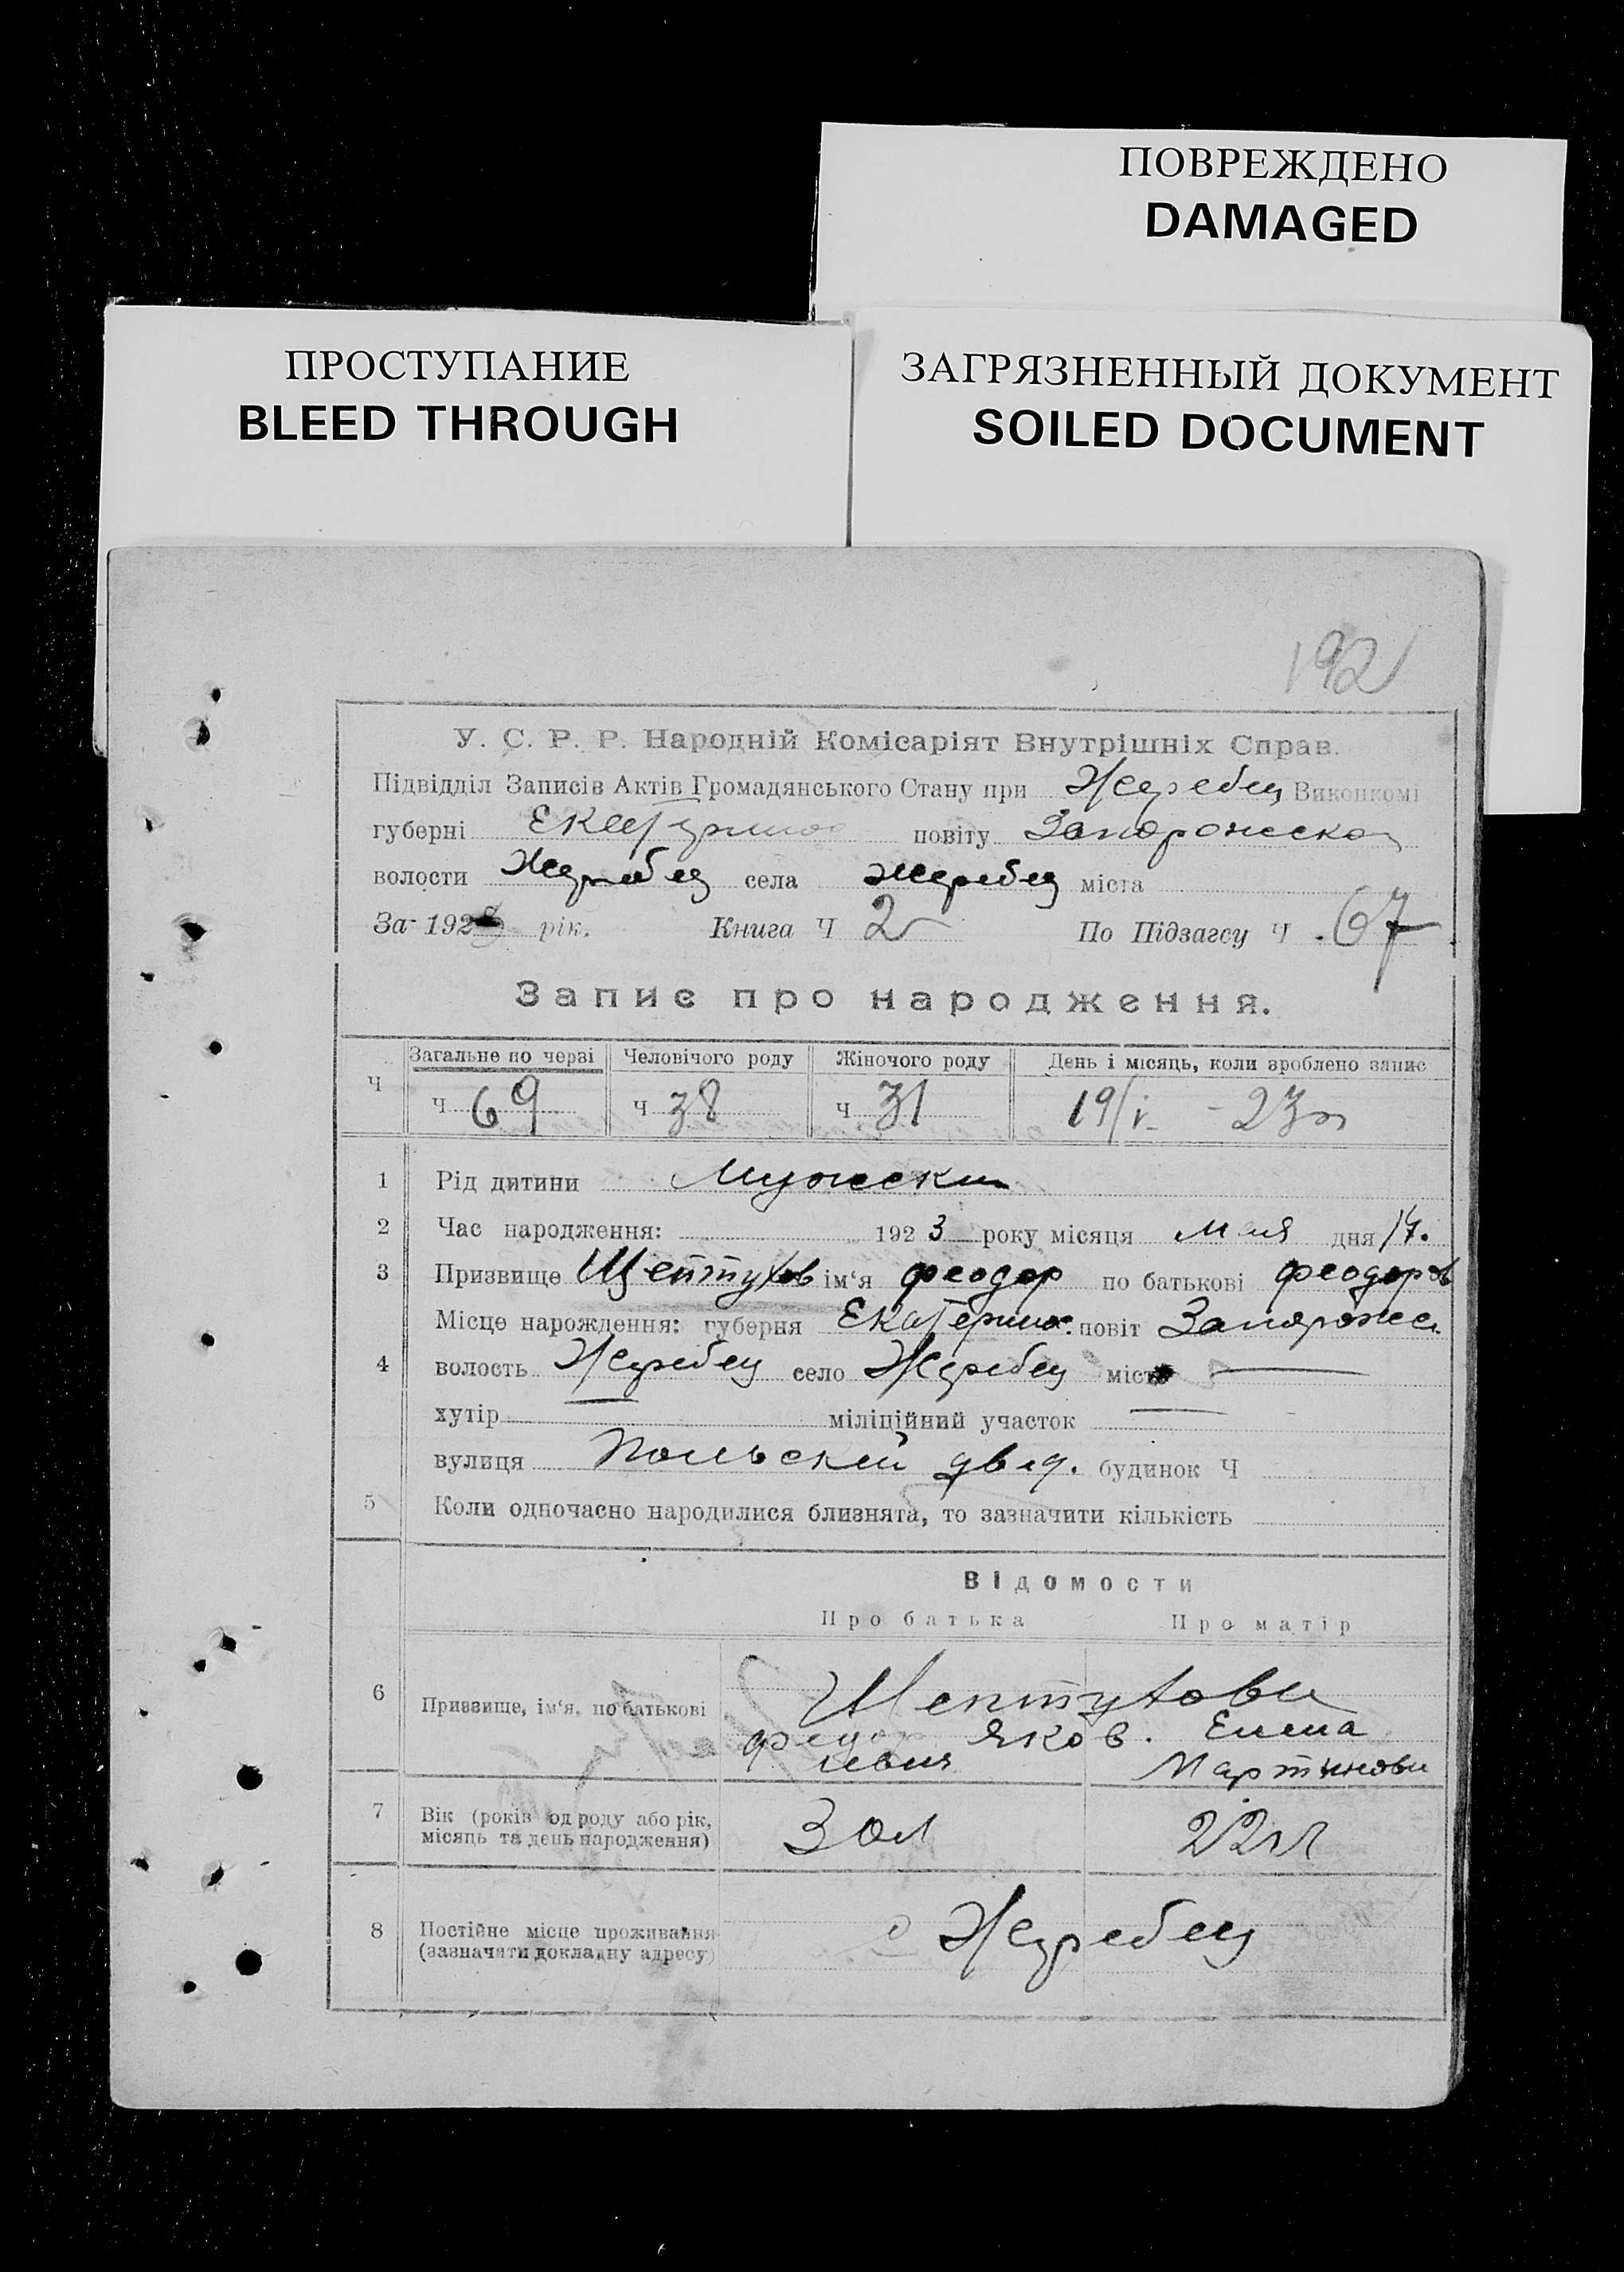 ПОВРЕЖДЕНО
DAMAGED
ПРОСТУПАНИЕ
BLEED THROUGH
ЗАГРЯЗНЕННЫЙ ДОКУМЕНТ
SOILED DOCUMENT
192
У. С. Р. Р. Народній Комісаріят Внутрішніх Справ.
Підвідділ Записів Актів Громадянського Стану при Жеребец Виконкомі
губерні Екатерино повіту Запорожско
волости Жеребец села Жеребец міста
За 1923 рік. Книга Ч 2 По Підзагсу Ч 67
Запис про народження.
Ч Загальне по черзі Человічого роду Жіночого роду День і місяць, коли зроблено запис
Ч 69 Ч 38 Ч 31 19/ - 23
1 Рід дитини Мужеский
2 Час народження: 1923 року місяця Мая дня 17.
3 Призвище ім'я феодор по батькові феодоров
Місце нарождення: губерня Екатерино. повіт Запорожск.
4 волость Жеребец село Жеребец місто —
хутір міліційний участок —
вулиця Польский будинок Ч
5 Коли одночасно народилися близнята, то зазначити кількість
Відомости
Про батька Про матір
6 Призвище, ім'я, по батькові
Федор Яков. Елена
левич Мартинови
7 Вік (років од роду або рік,
місяць та день народження) 30 л 22 л
8 Постійне місце проживання
(зазначити докладну адресу) с Жеребец